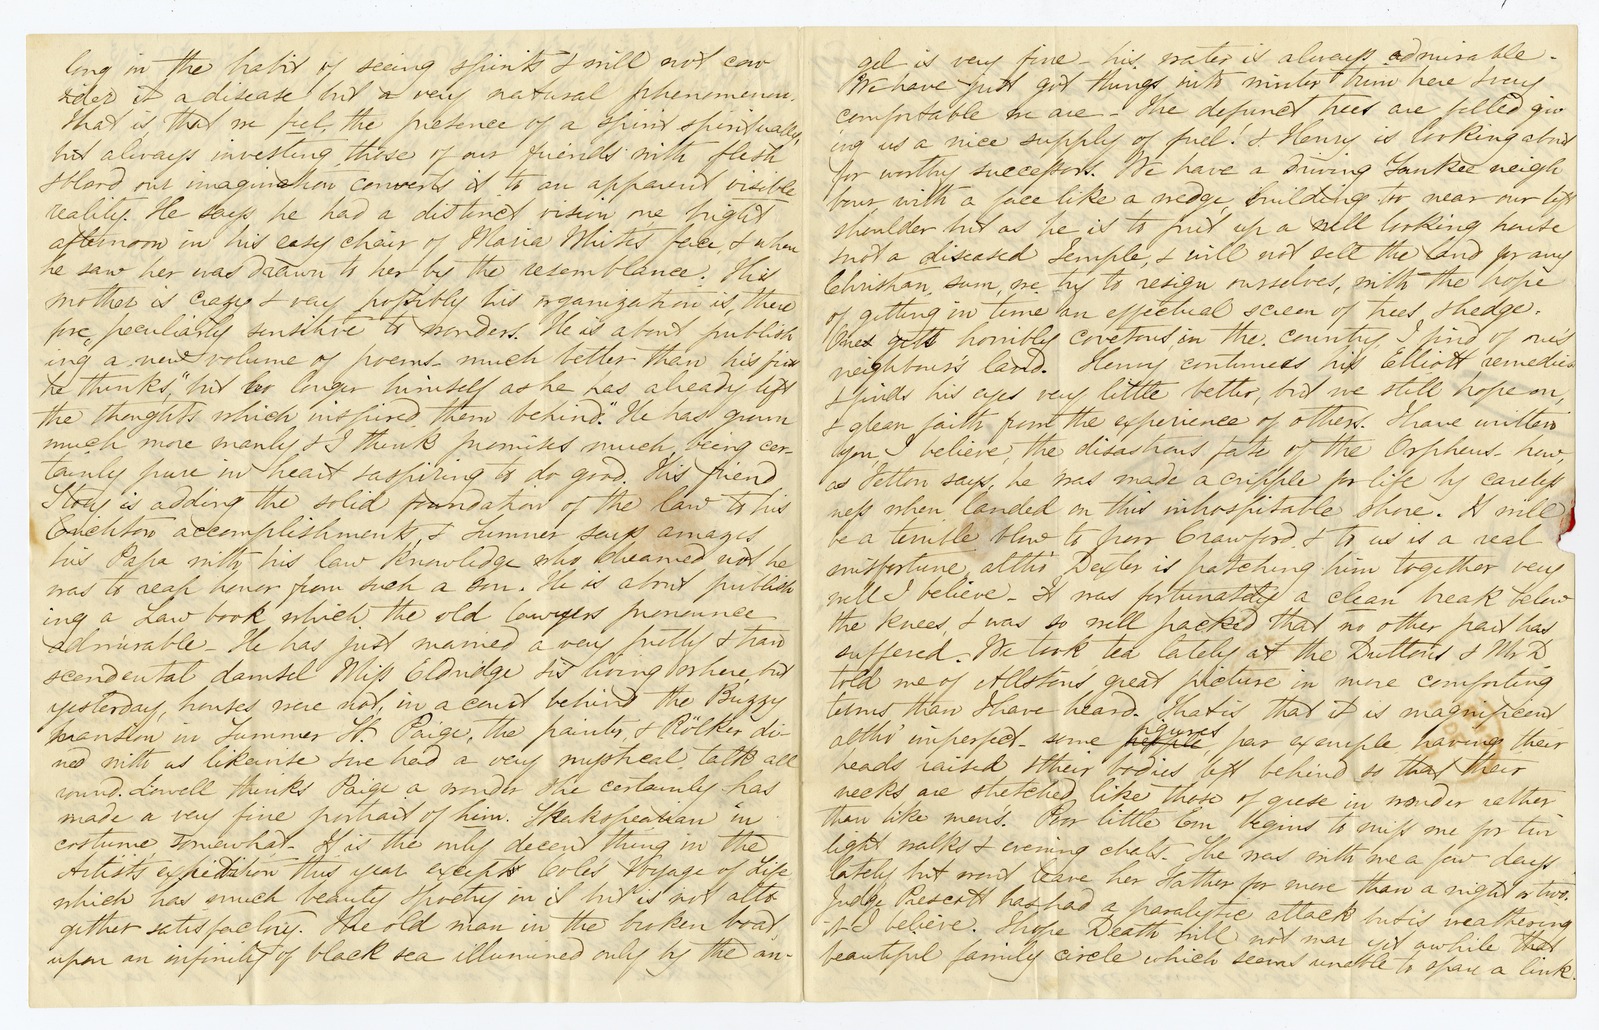 long in the habit of seeing spirits & will not con
sider it a disease but a very natural phenomenon.
That is, that we feel, the presence of a spirit spiritually,
but always investing those of our friends with flesh
& blood our imagination converts it to an apparent visible
reality. He says he had a distinct vision one bright
afternoon in his easy chair of Maria White's face, & when
he saw her was drawn to her by the resemblance. His
mother is crazy & very possibly his organization is, there
fore, peculiarly sensitive to wonders. He is about publish
ing a new volume of poems much better than his first
he thinks, "but no longer himself as he has already left
the thoughts which inspired them behind." He has grown
much more manly & I think promises much, being cer-
tainly pure in heart & aspiring to do good. His friend
Story is adding the solid foundation of the law to his
Crichton accomplishments, & Sumner says amazes
his Papa with his law knowledge who dreamed not he
was to reap honor from such a son. He is about publish
ing a Law book which the old lawyers pronounce
admirable - He has just married a very pretty & tran
scendental damsel Miss Eldridge & is living where, but
yesterday, houses were not, in a court behind the Bussy
mansion in Summer St. Paige, the painter, & Rölker di-
ned with us likewise & we had a very mystical talk all
round. Lowell thinks Paige a wonder & he certainly has
made a very fine portrait of him. Shakspearian in
costume somewhat. It is the only decent thing in the
Artists expedition this year except Cole's Voyage of Life
which has much beauty & poetry in it but is not alto
gether satisfactory. The old man in the broken boat,
upon an infinity of black sea illumined only by the an-
gel is very fine - his water is always admirable -
We have just got things into winter trim here & very
comfortable we are - The defunct trees are felled giv
ing us a nice supply of fuel! & Henry is looking about
for worthy successors. We have a driving Yankee neigh
bour with a face like a wedge, building too near our left
shoulder but as he is to put up a well looking house
& not a diseased Temple, & will not sell the land for any
Christian sum, we try to resign ourselves, with the hope
of getting in time an effectual screen of trees & hedge.
One gets horribly covetous, in the country, I find of one's
neighbour's land. Henry continues his Elliott remedies
& finds his eyes very little better, but we still hope on,
& glean faith from the experience of others. I have written
you, I believe, the disastrous fate of the Orpheus - how,
as Felton says, he was made a cripple for life by careless
ness when landed on this inhospitable shore. It will
be a terrible blow to poor Crawford & to us is a real
misfortune, altho' Dexter is patching him together very
well I believe - It was fortunately a clean break below
the knees, & was so well packed that no other part has
suffered. We took tea lately at the Duttons & Mr D
told me of Allston's great picture in more comforting
terms than I have heard. That is that it is magnificent
altho' imperfect - some figures, par exemple, having their
heads raised & their bodies left behind so that their
necks are stretched like those of geese in wonder rather
than like men's. Poor little Em begins to miss me for twi
light walks & evening chats. She was with me a few days
lately but won't leave her Father for more than a night or two.
Judge Prescott has had a paralytic attack but is weathering
it I believe. I hope Death will not mar yet awhile that
beautiful family circle which seems unable to spare a link.